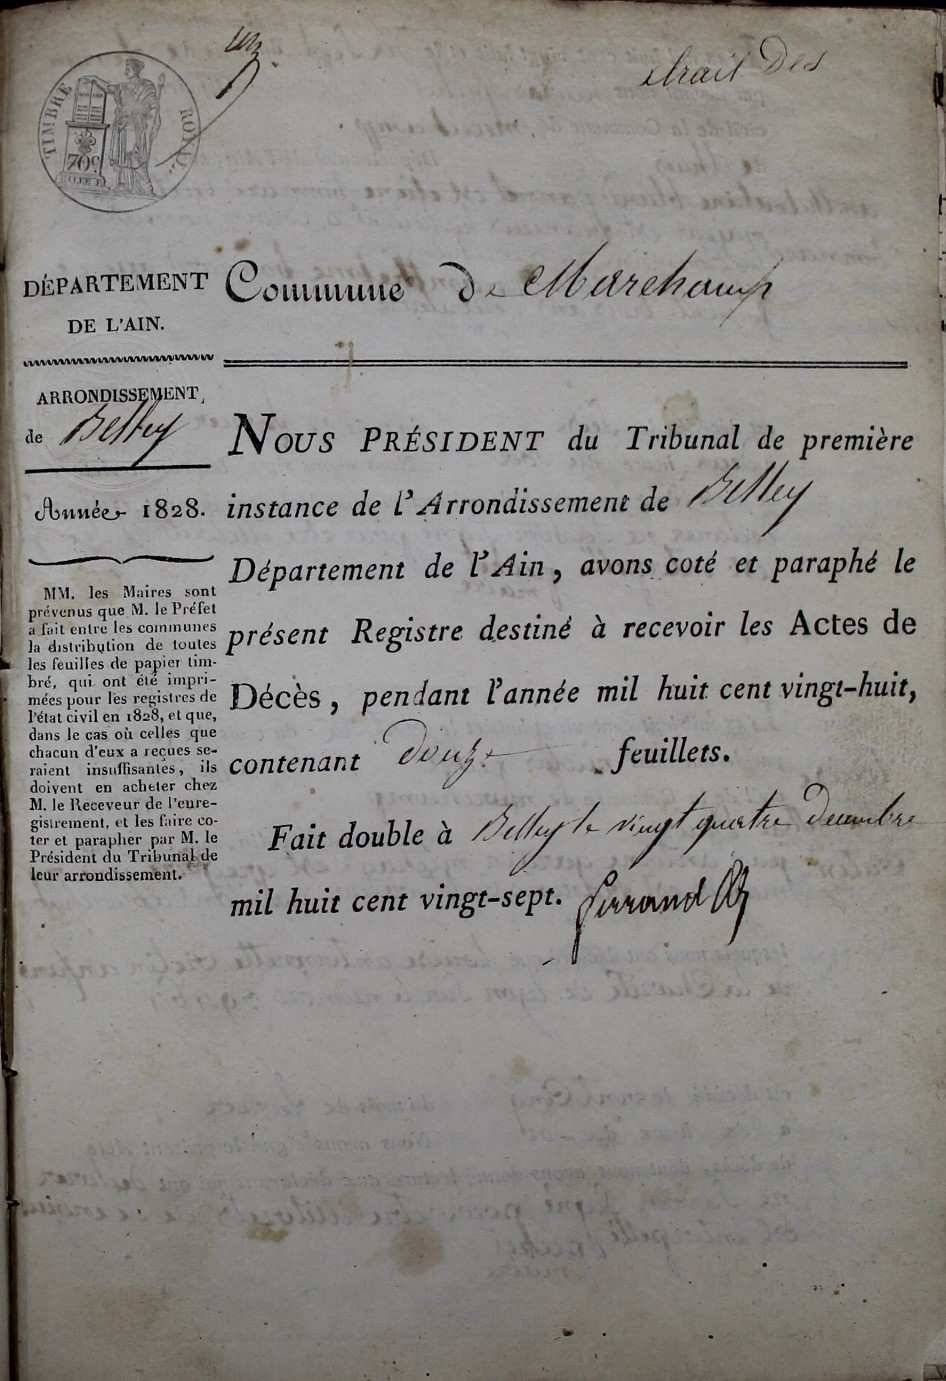 extrait Des
TIMBRE ROYAL
70c
DÉPARTEMENT
DE L'AIN.
Commune De Marchamp
ARRONDISSEMENT,
de Belley
Année 1828.
MM. les Maires sont
prévenus que M. le Préfet
a fait entre les communes
la distribution de toutes
les feuilles de papier tim-
bré, qui ont été impri-
mées pour les registres de
l'état civil en 1828, et que,
dans le cas où celles que
chacun d'eux a reçues se-
raient insuffisantes, ils
doivent en acheter chez
M. le Receveur de l'enre-
gistrement, et les faire co-
ter et parapher par M. le
Président du Tribunal de
leur arrondissement.
NOUS PRÉSIDENT du Tribunal de première
instance de l'Arrondissement de Belley
Département de l'Ain, avons coté et paraphé le
présent Registre destiné à recevoir les Actes de
Décès, pendant l'année mil huit cent vingt-huit,
contenant douze feuillets.
Fait double à Belley le vingt quatre Decembre
mil huit cent vingt-sept.